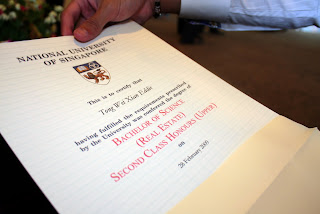 NATIONAL UNIVERSITY
OF SINGAPORE
This is to certify that
Tong Wei Xian Eddie
having fulfilled the requirements prescribed
by the University was conferred the degree of
BACHELOR OF SCIENCE
(REAL ESTATE)
SECOND CLASS HONOURS (UPPER)
on
28 February 2005